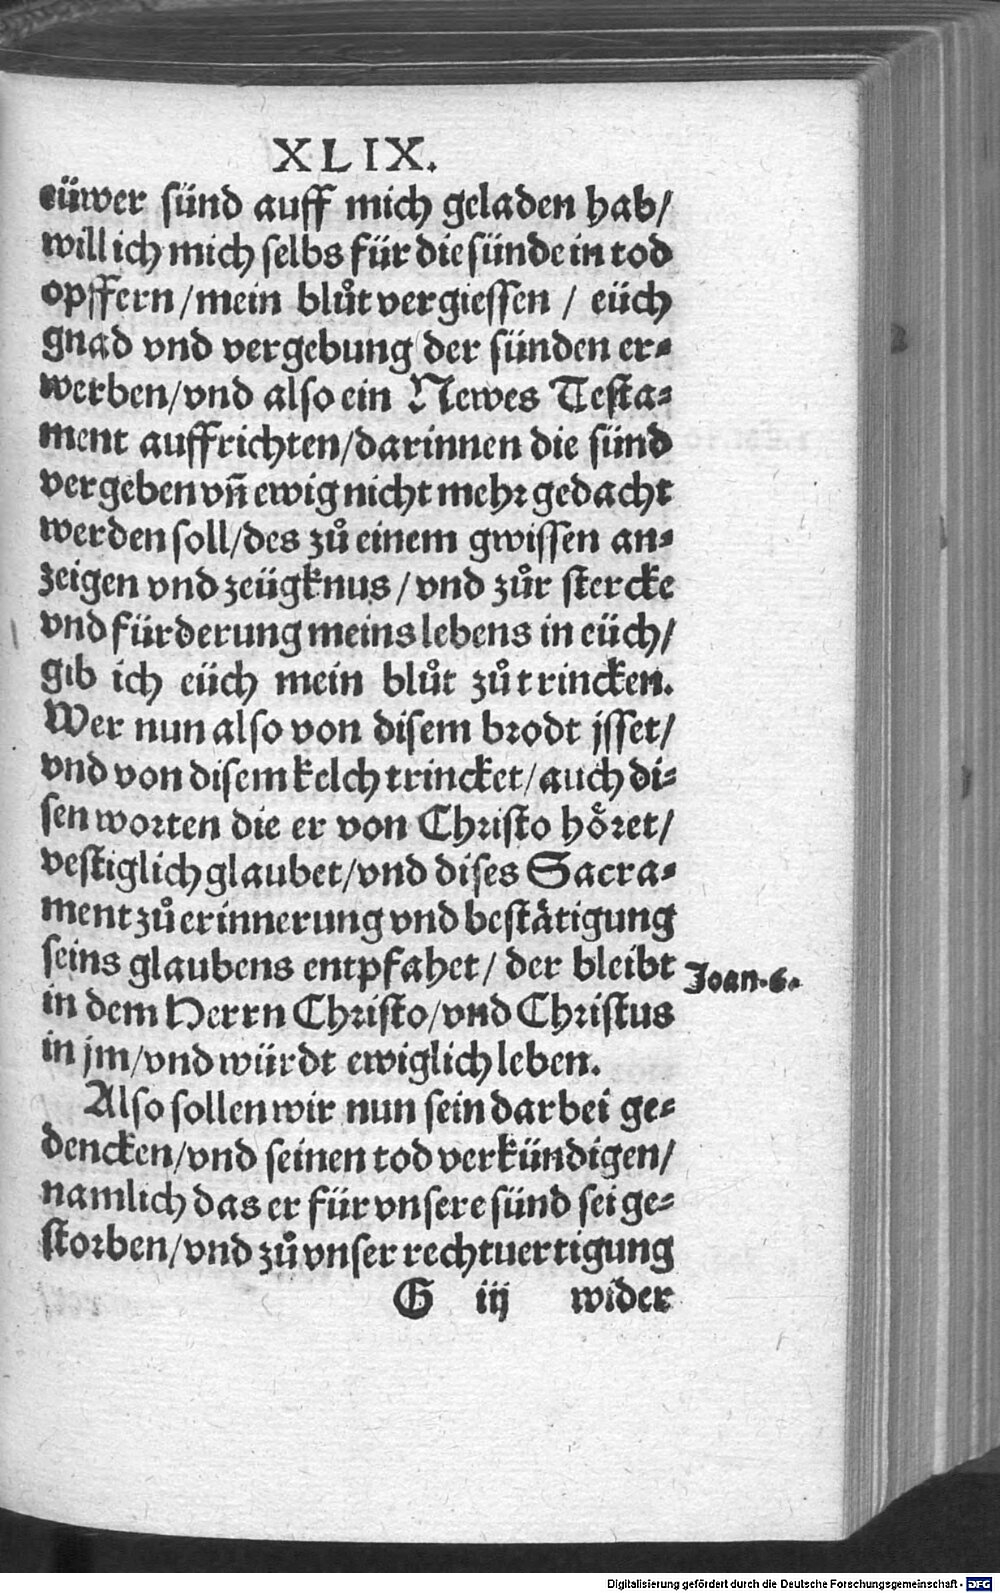 XLIX.
eüwer sünd auff mich geladen hab/
will ich mich selbs für die sünde in tod
opffern/mein blůt vergiessen / eüch
gnad vnd vergebung der sünden er⸗
werben/vnd also ein Newes Testa⸗
ment auffrichten/darinnen die sünd
vergeben vñ ewig nicht mehr gedacht
werden soll/des zů einem gwissen an⸗
zeigen vnd zeügknus/vnd zůr stercke
vnd fürderung meins lebens in eüch/
gib ich eüch mein blůt zů trincken.
Wer nun also von disem brodt jsset/
vnd von disem kelch trincket/auch di⸗
sen worten die er von Christo höret/
vestiglich glaubet/vnd dises Sacra⸗
ment zů erinnerung vnd bestätigung
seins glaubens entpfahet/ der bleibt
Joan.6.
in dem Herrn Christo/vnd Christus
in jm/vnd würdt ewiglich leben.
Also sollen wir nun sein darbei ge⸗
dencken/vnd seinen tod verkündigen/
namlich das er für vnsere sünd sei ge⸗
storben/vnd zů vnser rechtuertigung
G iij wider
Digitalisierung gefördert durch die Deutsche Forschungsgemeinschaft - DFG